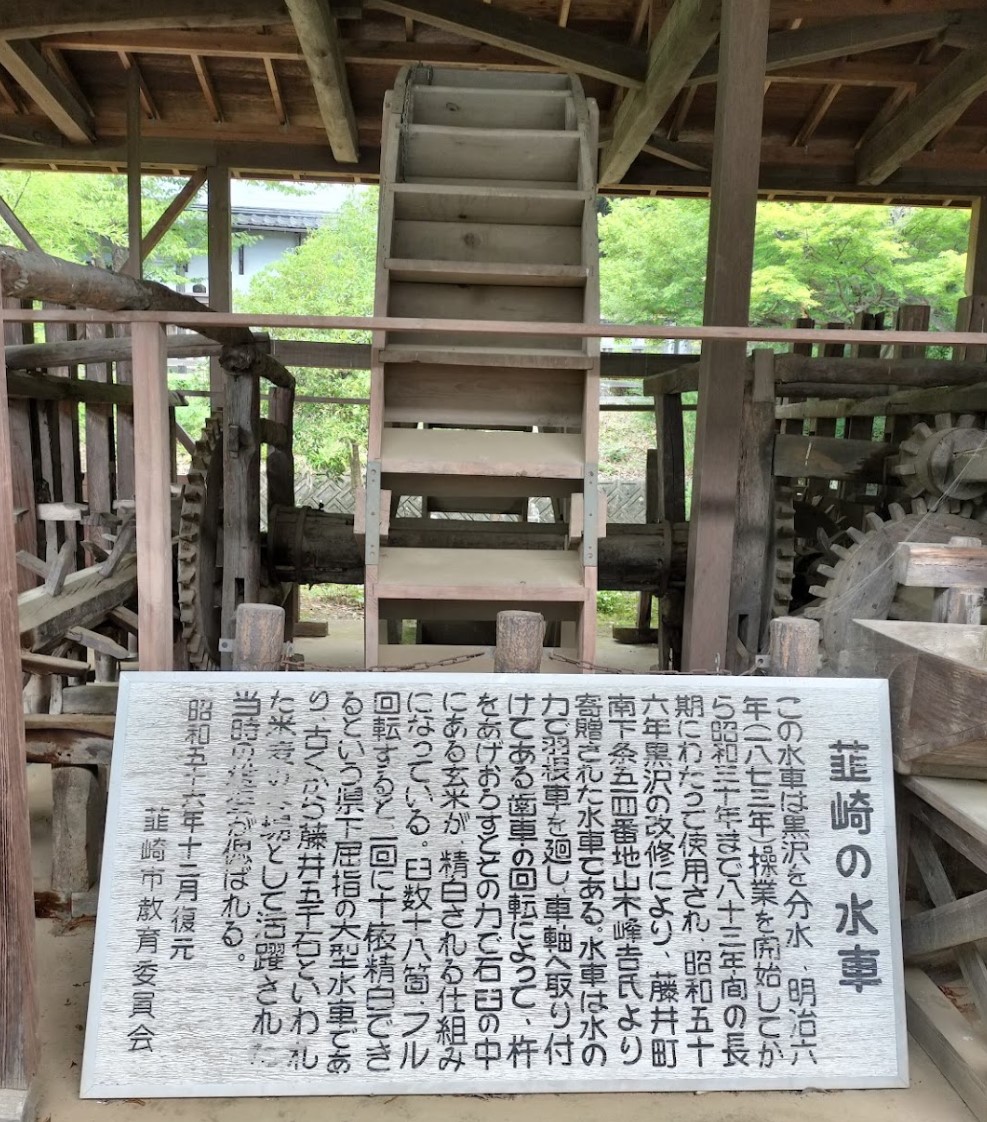 韮崎の水車
この水車は黒沢を分水、明治六
年(一八七三年)操業を開始してか
ら昭和三十年まで八十三年間の長
期にわたって使用され、昭和五十
六年黒沢の改修により、藤井町
南下条五四番地山本峰吉氏より
寄贈された水車である。水車は水の
力で羽根車を廻し、車軸へ取り付
けてある歯車の回転によって、杵
をあげおろすとその力で石臼の中
にある玄米が、精白される仕組み
になっている。臼数十八箇フル
回転すると、一回に十俵精白でき
るという県下屈指の大型水車であ
り、古くから藤井五千石といわれ
た米 として活躍された
当時の が偲ばれる。
昭和五十六年十二月復元
韮崎市教育委員会